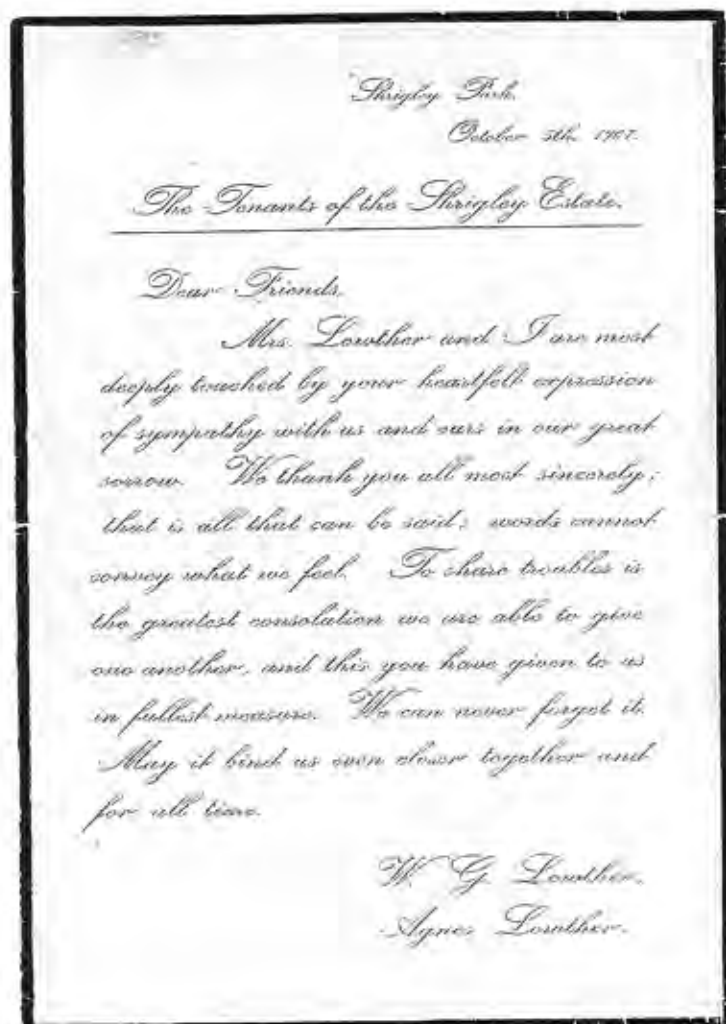 Shrigley Park.
October 5th. 1907.
The Tenants of the Shrigley Estate.
Dear Friends,
Mrs. Lowther and I are most
deeply touched by your heartfelt expression
of sympathy with us and ours in our great
sorrow. We thank you all most sincerely;
that is all that can be said; words cannot
convey what we feel. To share troubles is
the greatest consolation we are able to give
one another, and this you have given to us
in fullest measure. We can never forget it.
May it bind us even closer together and
for all time.
W. G. Lowther.
Agnes Lowther.